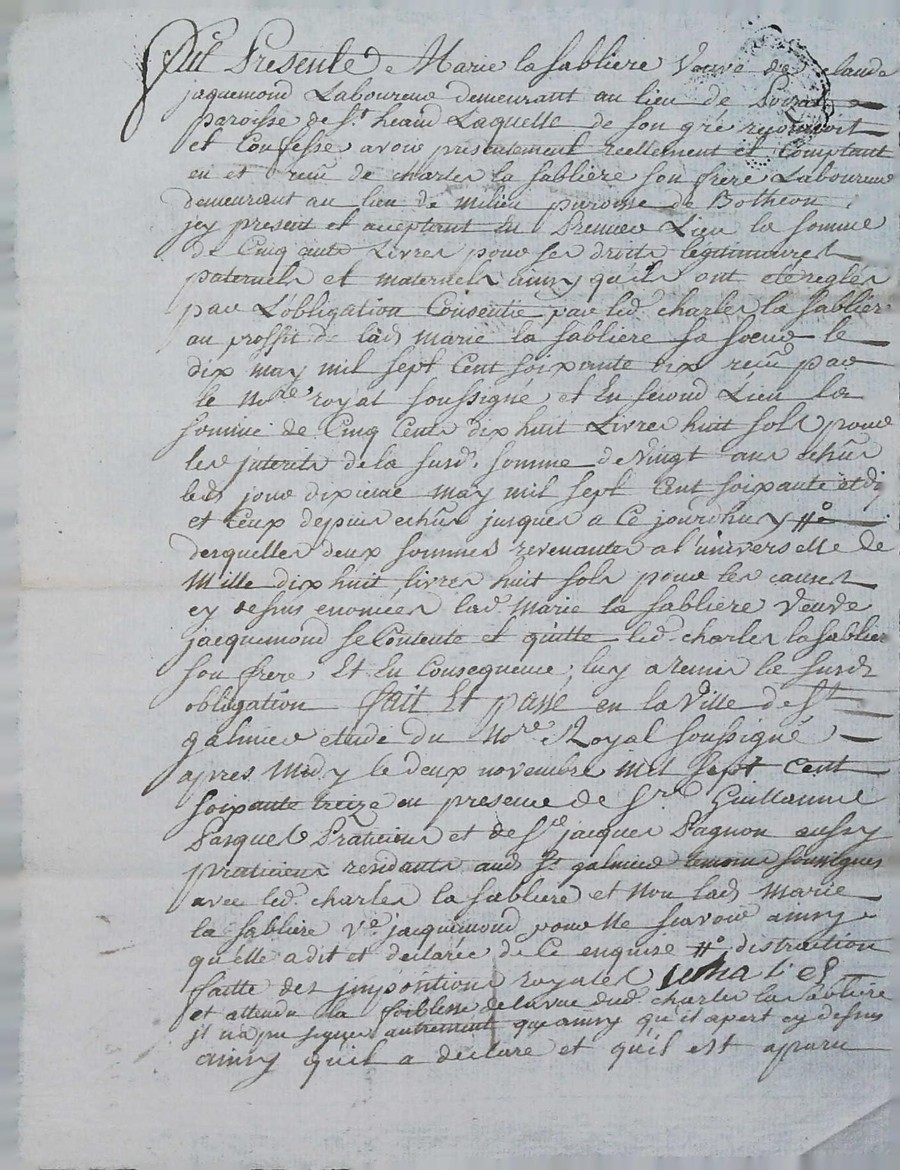 Fut Presente Marie la sabliere Veuve de claude
jaquemond Laboureur demeurant au lieu de
paroisse de St heand Laquelle de son gré reconnoit
et Confesse avoir presentement reellement et Comptant
eu et reçu de charles la sabliere son frere Laboureur
demeurant au lieu de milieu paroisse de Botheon
jcy present et acceptant En Premier Lieu la somme
de Cinq cents Livres pour ses droits legitimaires
paternels et maternels ainsy qu'ils ont eté reglés
par L'obligation Consentie par led. charles la sabliere
au proffit de lad. marie la sabliere sa soeur le
dix may mil sept Cent soixante dix reçu par
le Nore royal soussigné et En second Lieu la
somme de Cinq Cents dix huit Livres huit sols pour
les jnterits de la susd. somme de vingt ans echûs
led. jour dixieme may mil sept Cent soixante et dix
et Ceux depuis echûs jusques a Ce jourdhuy #
desquelles deux sommes revenantes a l'universelle de
Mille dix huit livres huit sols pour les causes
cy dessus enoncées lad. Marie la sabliere veuve
jacquemond se Contente et quitte led. charles la sabliere
son frere Et En Consequence, luy a remis la susd.
obligation fait Et passé en la Ville de St
galmier etude du Nore Royal soussigné
apres Midy le deux novembre mil sept cent
soixante treize en presence de Sr Guillaume
Pasquel Praticien et de Sr jacques Pagnon aussy
praticien residants aud. St galmier temoins soussignés
avec led. charles la sabliere et Non lad. Marie
la sabliere Ve jacquemond pour Ne sçavoir ainsy
qu'elle a dit et declaré de Ce enquise # distraction
faitte des jmpositions royales
et attendu la foiblesse de la vue dud. charles la sabliere
jl n'a pu signer autrement que ainsy qu'il apert cy dessus
ainsy qu'il a declaré et qu'il est aparu